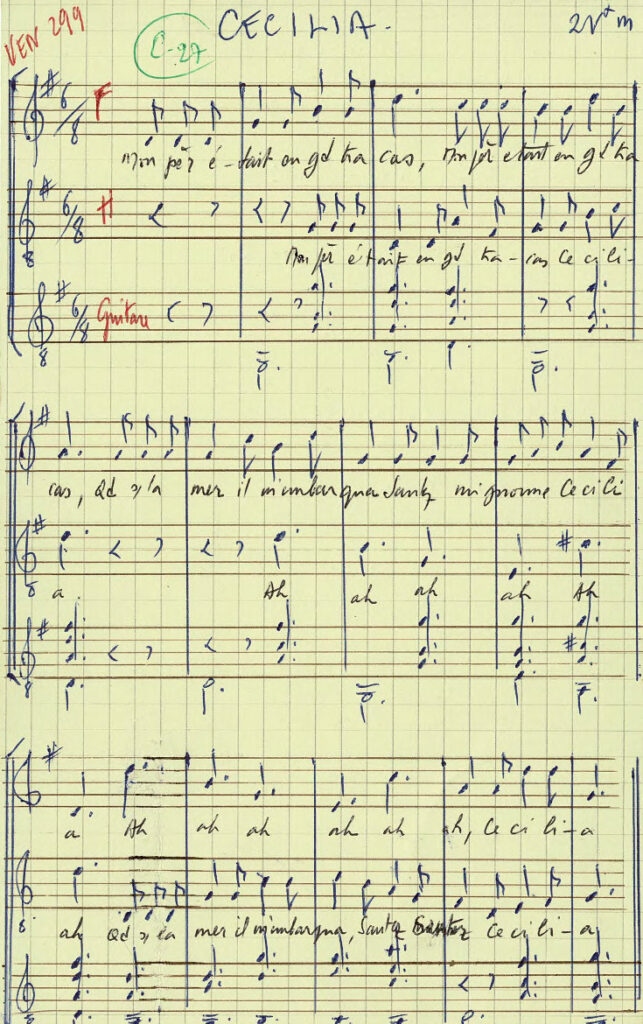 VEN 299
C-27
CECILIA.
6/8 F
Mon pèr é-tait un gd tra cas, Mon pèr etait un gd tra
6/8 H
Mon pèr é tait un gd tra-cas Ce ci li-
6/8 Guitare
cas, Qd la mer il m'embarqua Sautez mignonne Ce ci li
a Ah ah ah ah Ah
a Ah ah ah ah ah ah, Ce ci li-a
ah Qd la mer il m'embarqua, Sautez Ce ci li-a